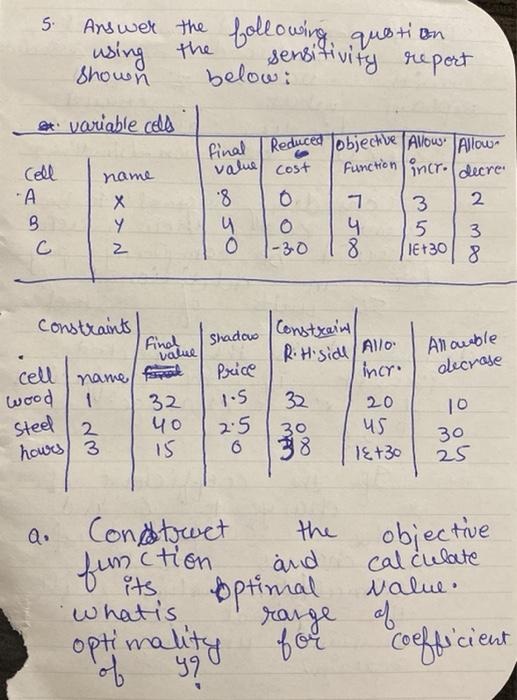 5. Answer the following question
using the sensitivity report
shown below:
variable cells
Cell name Final value Reduced cost objective Function Allow. incr. Allow. decre.
A X 8 0 7 3 2
B Y 4 0 4 5 3
C Z 0 -30 8 1E+30 8
Constraints
cell name Final value Shadow Price Constrain R.H.side Allo. incr. Allowable decrase
wood 1 32 1.5 32 20 10
Steel 2 40 2.5 30 45 30
hours 3 15 0 38 1E+30 25
a. Construct the objective
function and calculate
its optimal value.
what is range of
optimality for coefficient
of y?